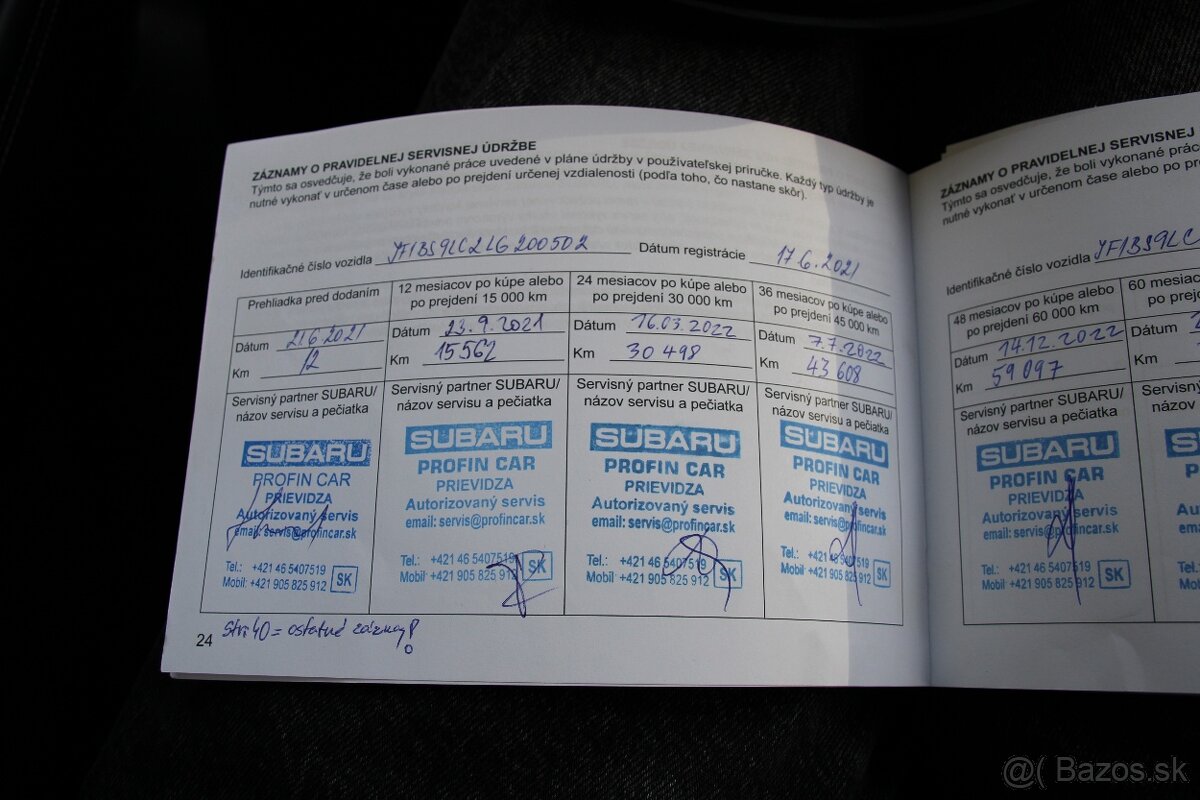 ZÁZNAMY O PRAVIDELNEJ SERVISNEJ ÚDRŽBE
Týmto sa osvedčuje, že boli vykonané práce uvedené v pláne údržby v používateľskej príručke. Každý typ údržby je
nutné vykonať v určenom čase alebo po prejdení určenej vzdialenosti (podľa toho, čo nastane skôr).
Identifikačné číslo vozidla JF1BS9LC2LG200502 Dátum registrácie 17.6.2021
Prehliadka pred dodaním
Dátum 21.6.2021
Km 12
Servisný partner SUBARU/
názov servisu a pečiatka
SUBARU
PROFIN CAR
PRIEVIDZA
Autorizovaný servis
email: servis@profincar.sk
Tel.: +421 46 5407519
Mobil: +421 905 825 912 SK
12 mesiacov po kúpe alebo
po prejdení 15 000 km
Dátum 23.9.2021
Km 15562
Servisný partner SUBARU/
názov servisu a pečiatka
SUBARU
PROFIN CAR
PRIEVIDZA
Autorizovaný servis
email: servis@profincar.sk
Tel.: +421 46 5407519
Mobil: +421 905 825 912 SK
24 mesiacov po kúpe alebo
po prejdení 30 000 km
Dátum 16.03.2022
Km 30 498
Servisný partner SUBARU/
názov servisu a pečiatka
SUBARU
PROFIN CAR
PRIEVIDZA
Autorizovaný servis
email: servis@profincar.sk
Tel.: +421 46 5407519
Mobil: +421 905 825 912 SK
36 mesiacov po kúpe alebo
po prejdení 45 000 km
Dátum 7.7.2022
Km 43 608
Servisný partner SUBARU/
názov servisu a pečiatka
SUBARU
PROFIN CAR
PRIEVIDZA
Autorizovaný servis
email: servis@profincar.sk
Tel.: +421 46 5407519
Mobil: +421 905 825 912 SK
24 Str. 40 = ostatné záznamy!
ZÁZNAMY O PRAVIDELNEJ SERVISNEJ
Týmto sa osvedčuje, že boli vykonané práce
nutné vykonať v určenom čase alebo po pre
Identifikačné číslo vozidla JF1BS9LC
48 mesiacov po kúpe alebo
po prejdení 60 000 km
Dátum 14.12.2022
Km 59 097
Servisný partner SUBARU/
názov servisu a pečiatka
SUBARU
PROFIN CAR
PRIEVIDZA
Autorizovaný servis
email: servis@profincar.sk
Tel.: +421 46 5407519
Mobil: +421 905 825 912 SK
60 mesia
po prej
Dátum
Km
Servisný
názov se
@( Bazos.sk